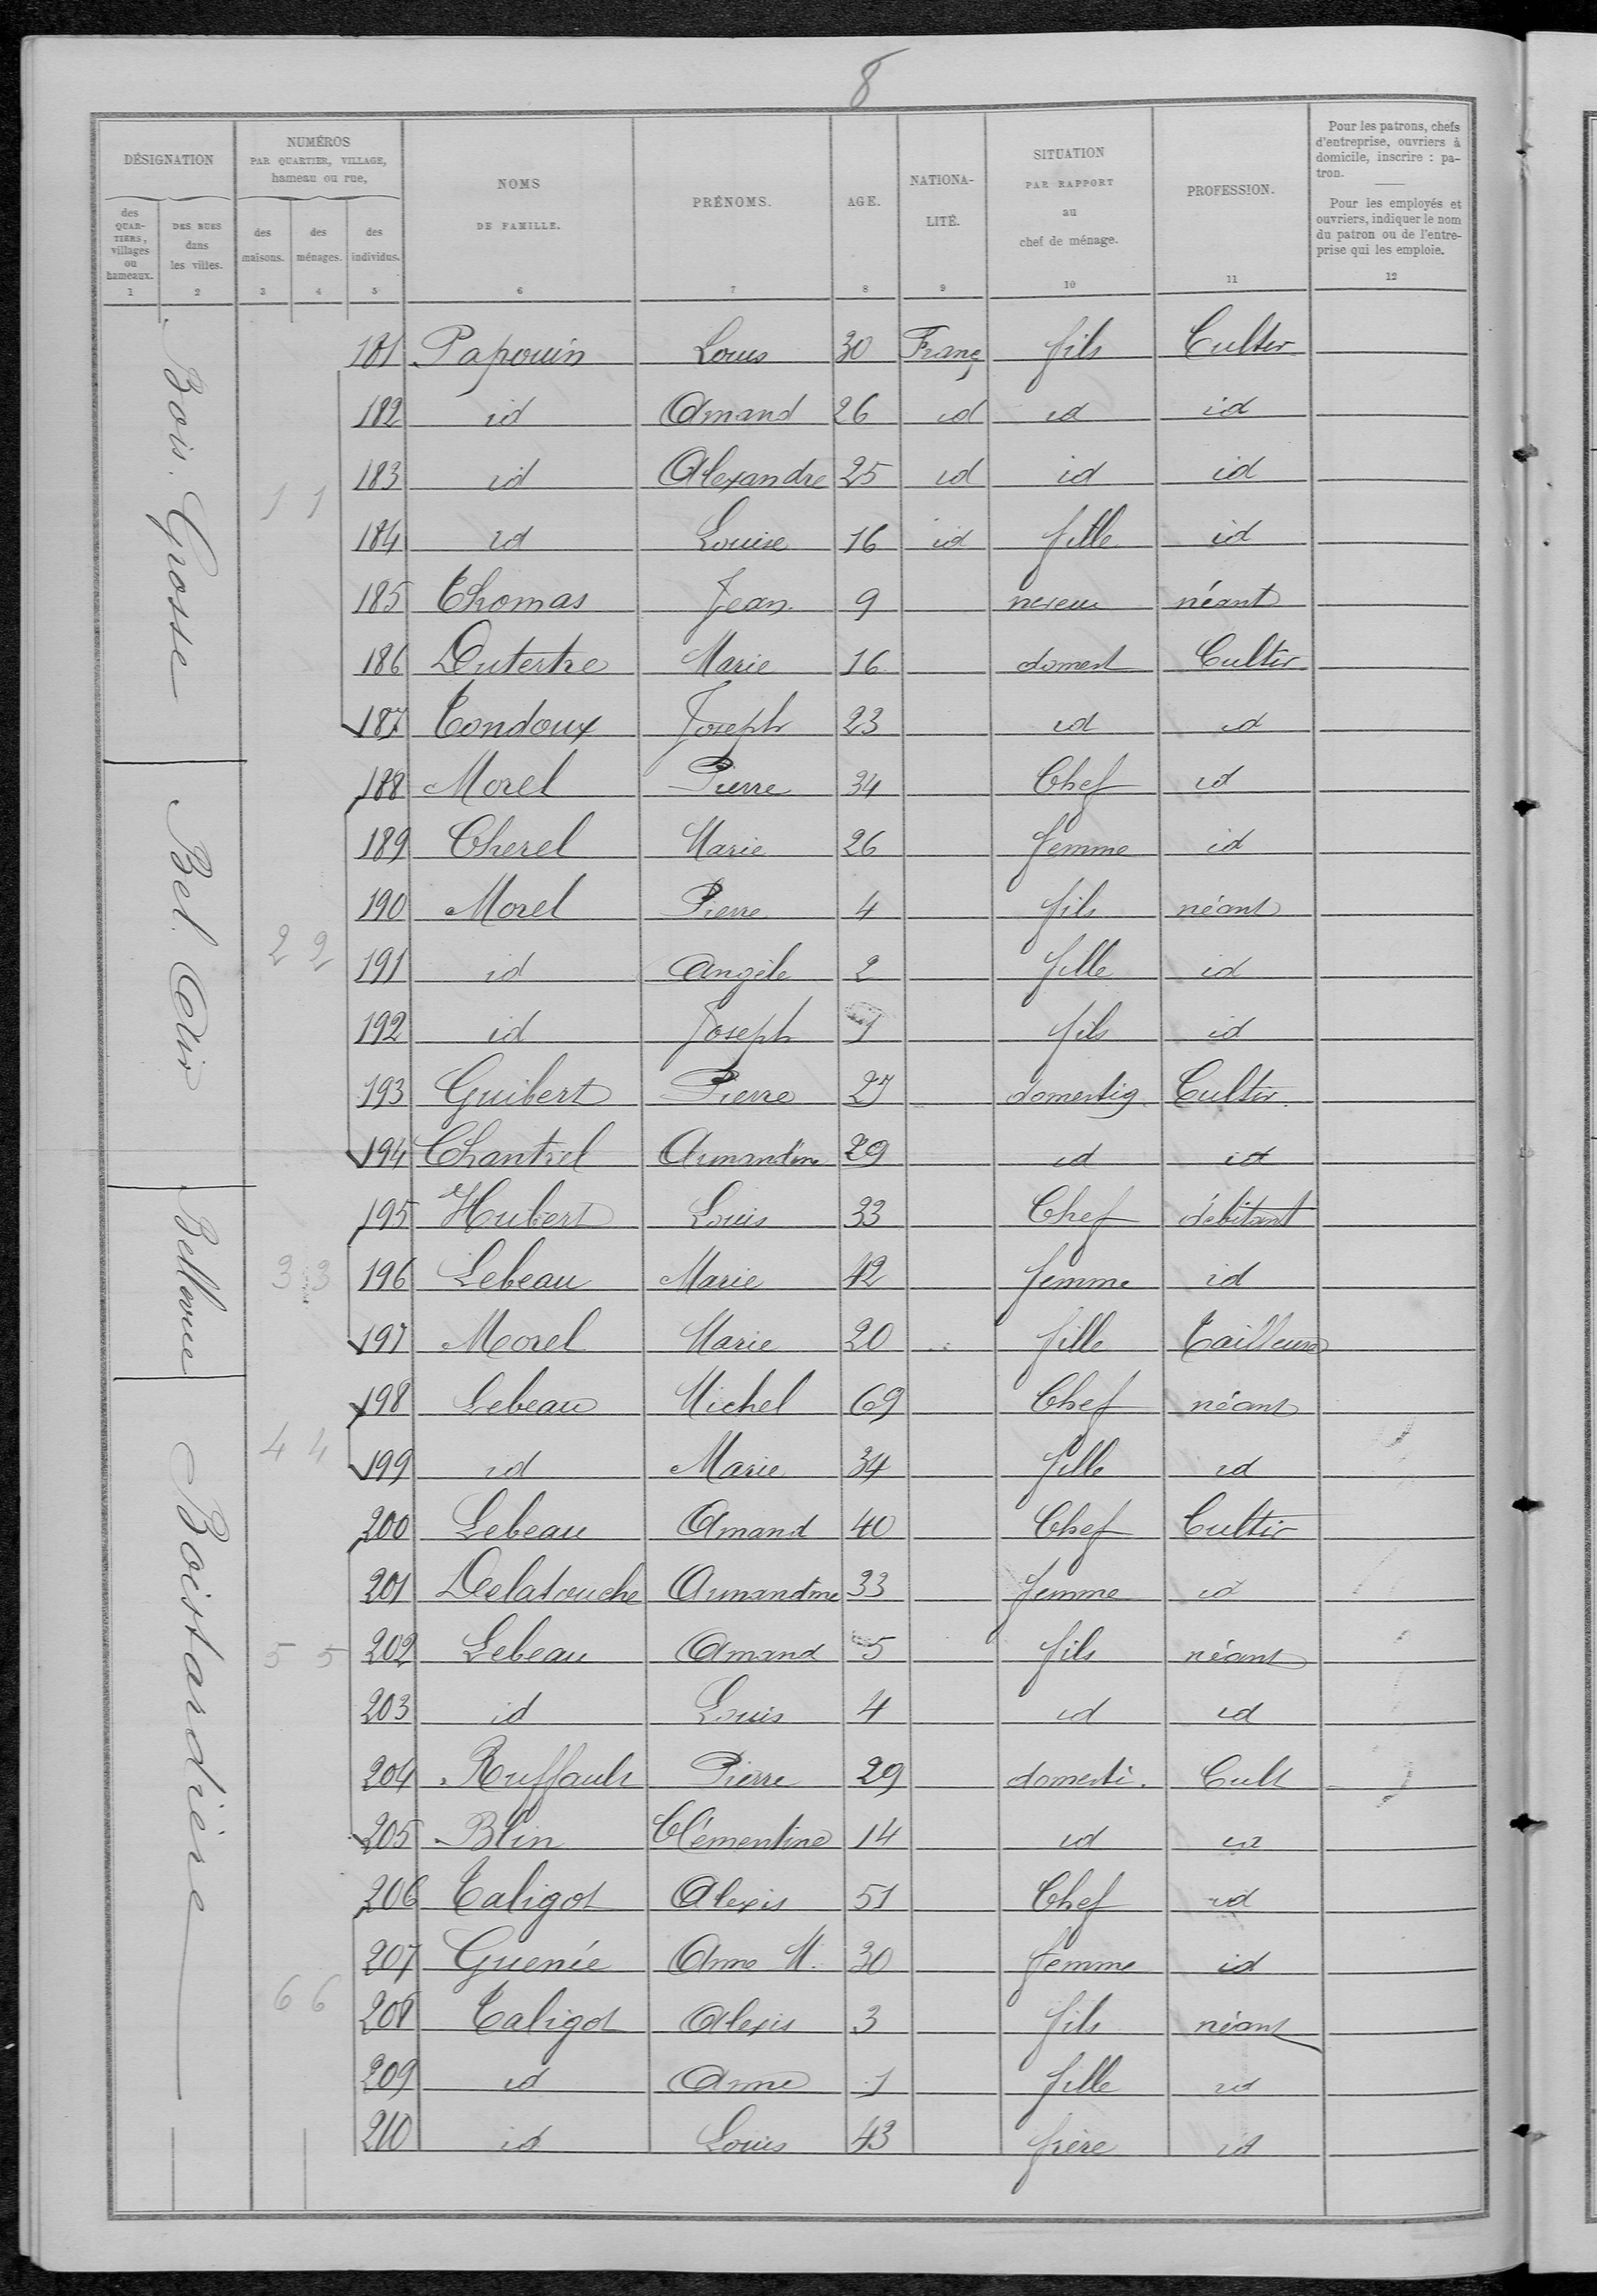 8
DÉSIGNATION
NUMÉROS
PAR QUARTIER, VILLAGE,
hameau ou rue,
des QUARTIERS, villages ou hameaux. 1
DES RUES dans les villes. 2
des maisons. 3
des ménages. 4
des individus. 5
NOMS DE FAMILLE. 6
PRÉNOMS. 7
AGE. 8
NATIONALITÉ. 9
SITUATION PAR RAPPORT au chef de ménage. 10
PROFESSION. 11
Pour les patrons, chefs d'entreprise, ouvriers à domicile, inscrire : patron.
Pour les employés et ouvriers, indiquer le nom du patron ou de l'entreprise qui les emploie. 12
Bois. Grosse
1 1
181 Papouin Louis 30 Franç fils Cultiv
182 id Amand 26 id id id
183 id Alexandre 25 id id id
184 id Louise 16 id fille id
185 Thomas Jean 9 neveu néant
186 Dutertre Marie 16 domest Cultiv
187 Tondoux Joseph 23 id id
Bel. Air
2 2
188 Morel Pierre 34 Chef id
189 Cherel Marie 26 femme id
190 Morel Pierre 4 fils néant
191 id Angèle 2 fille id
192 id Joseph 1 fils id
193 Guibert Pierre 27 domestiq Cultiv.
194 Chantrel Armandine 29 id id
Bellevue
3 3
195 Hubert Louis 33 Chef débitant
196 Lebeau Marie 42 femme id
197 Morel Marie 20 fille Tailleuse
Boistardière
4 4
198 Lebeau Michel 69 Chef néant
199 id Marie 34 fille id
5 5
200 Lebeau Amand 40 Chef Cultiv
201 Delatouche Armandine 33 femme id
202 Lebeau Amand 5 fils néant
203 id Louis 4 id id
204 Ruffault Pierre 29 domesti. Cult
205 Blin Clémentine 14 id id
6 6
206 Taligot Alexis 51 Chef id
207 Guenée Anne M. 30 femme id
208 Taligot Alexis 3 fils néant
209 id Anne 1 fille id
210 id Louis 43 frère id